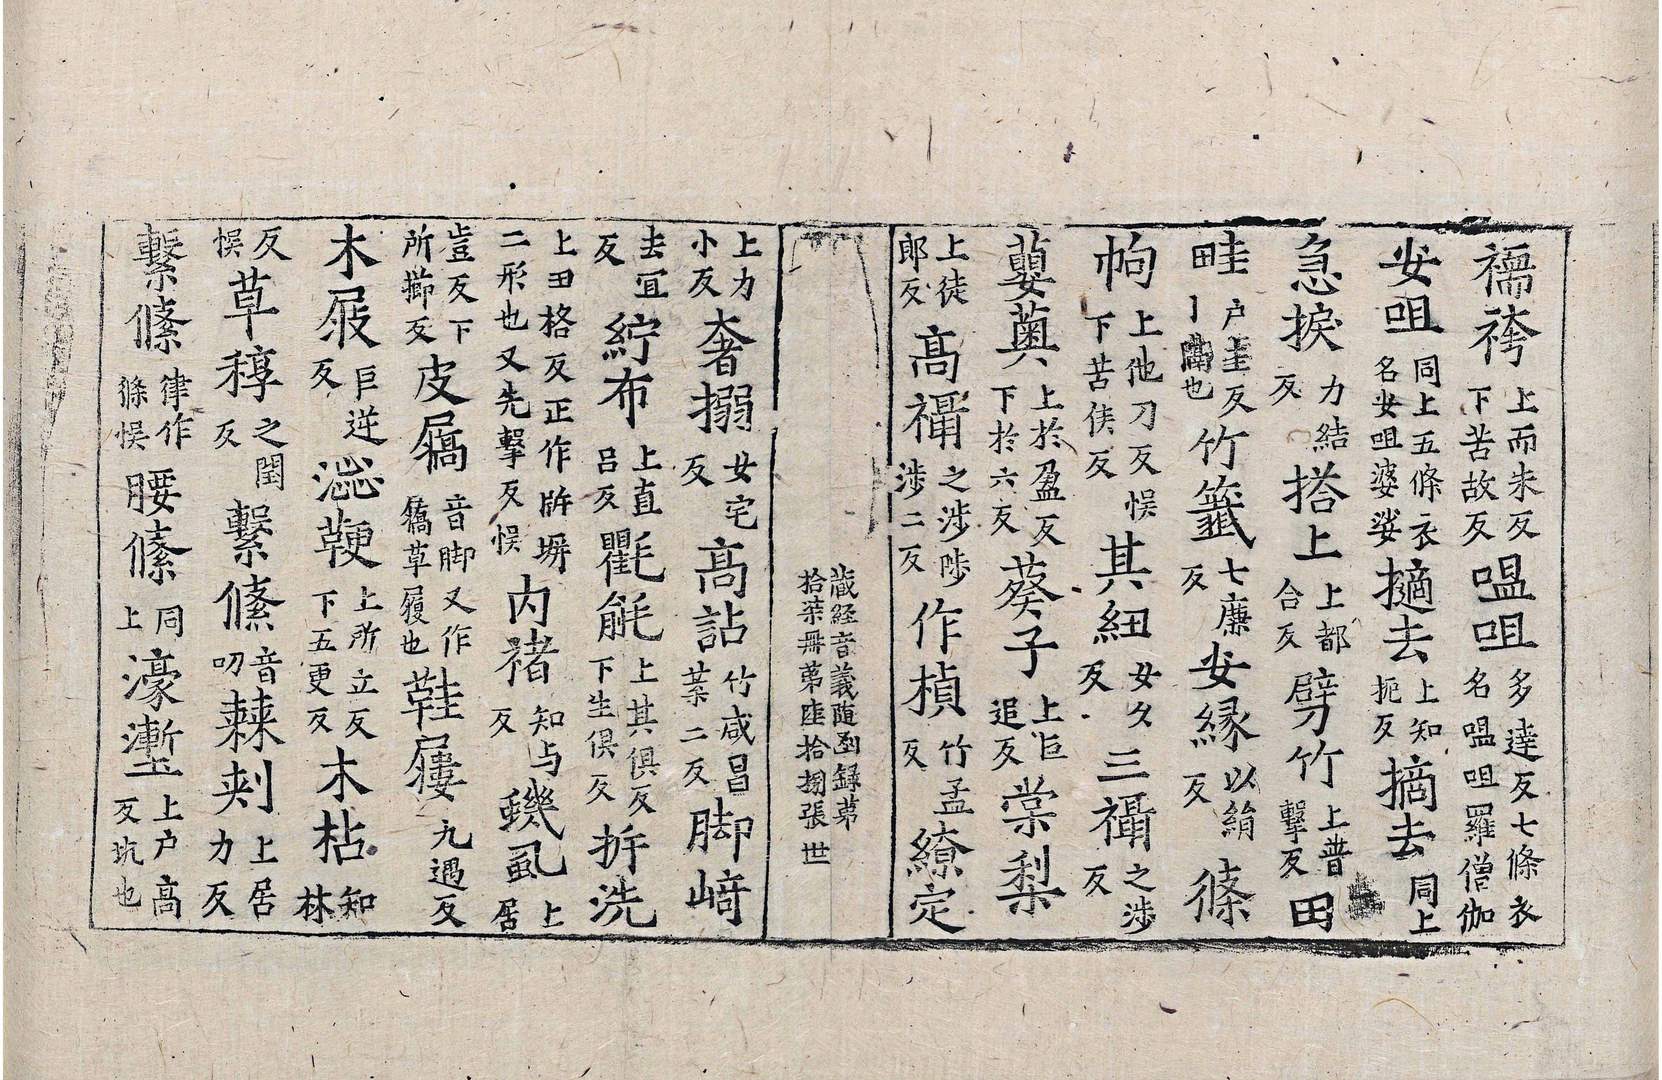 襦袴上而朱反下苦故反嗢咀多達反七條衣名嗢咀羅僧伽
安咀同上五條衣名安咀婆娑擿去上知扼反摘去同上
急捩力結反搭上上都合反劈竹上普擊反田
畦户圭反竹籤七廉反安緣以絹反絛
帉上他刀反悮下苦侠反其紐女久反三襵之涉反
蘡薁上於盈反下於六反葵子上巨追反棠梨
上徒郎反高襵之涉陟涉二反作楨竹孟反繚定
藏經音義随函録弟
拾柒冊苐陸拾捌張 世
上力小反奢搦女宅反高詀竹咸昌葉二反脚﨑
去冝反紵布上直呂反氍毹上其俱反下生俱反折洗
上田格反正作㡿塀二形也又先擊反悮内褚知与反蟣虱上居
豈反下所擳反皮屩音脚又作𪨗草履也鞋屨九遇反
木屐巨逆反澁鞕上所立反下五更反木枮知林
反悮草稕之閏反繫絛音叨棘刺上居力反
繫絛律作絛悮腰絛同上濠塹上户高反坑也